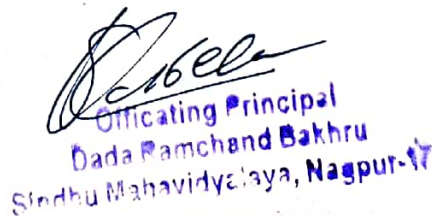 Officating Principal
Dada Ramchand Bakhru
Sindhu Mahavidyalaya, Nagpur-17